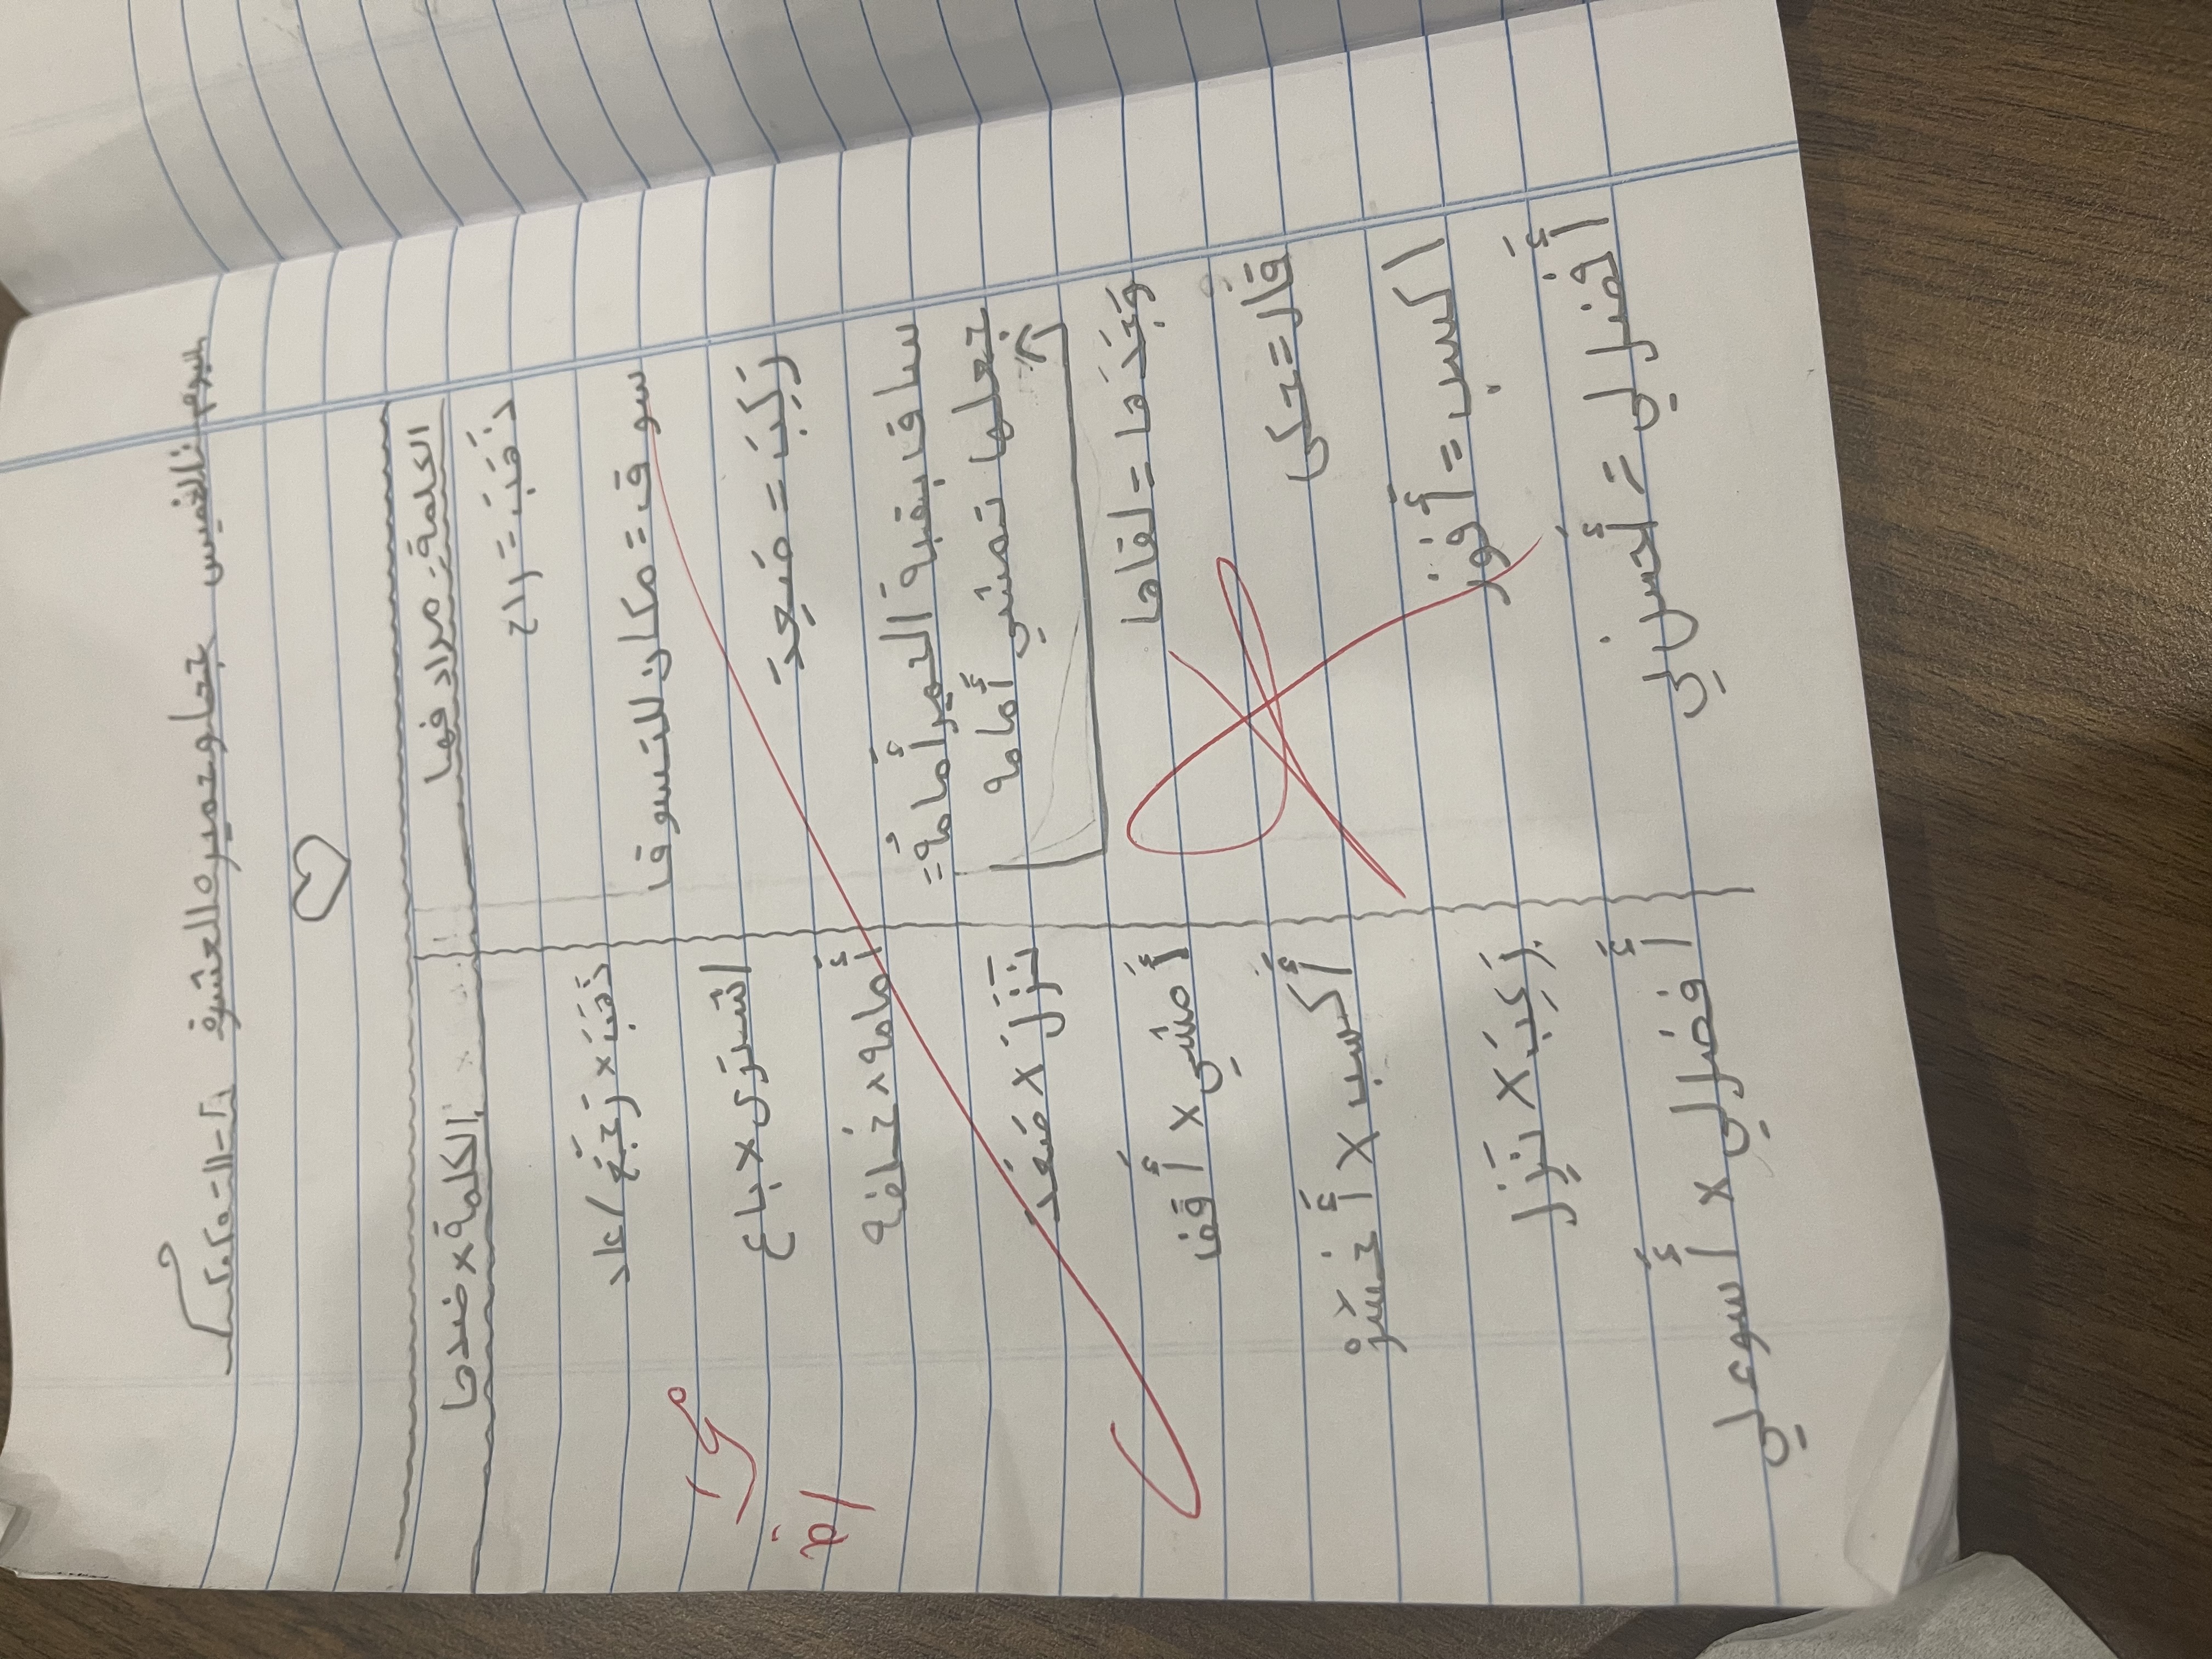 اليوم: الخميس جحا وحميره العشرة
الكلمة = مرادفها
ذَهَبَ = راح
سوق = مكان للتسوقا
رَكِبَ = صَعِدَ
ساقا بقبة الحمير أَمامهُ =
جعلها تمشي أَمامه
وَجَدَهَا = لقاها
قَال = حكى
اكسب = أَفوز
أَفضل لي = أَحسن لي
الكلمة × ضدها
ذَهَبَ × رَجَعَ / عاد
اشترى × باع
أَمامه × خلفه
نَزَلَ × صَعَدَ
أَمشي × أَقفا
أَكسب × أَخسَرْ
رَكِبَ × نَزِل
أَفضل لي × أَسوء لي